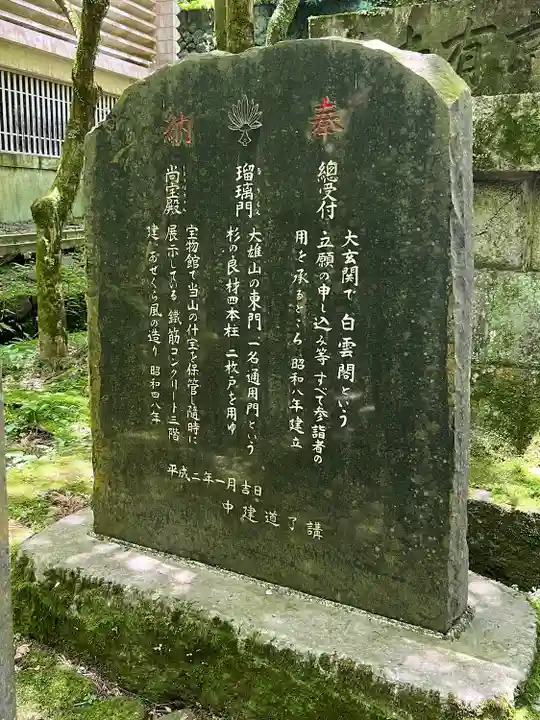 奉納
總受付
大玄関で 白雲閣という
立願の申し込み等 すべて参詣者の
用を承るところ 昭和八年建立
瑠璃門
大雄山の東門 一名通用門という
杉の良材四本柱 二枚戸を用ゆ
尚宝殿
宝物館で当山の什宝を保管し随時に
展示している 鐵筋コンクリート三階
建 あぜくら風の造り 昭和四八年
平成二年一月吉日
中建道了講